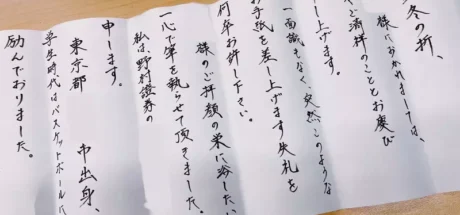 冬の折、
様におかれましては、
ご清祥のこととお慶び
し上げます。
一面識もなく突然このような
お手紙を差し上げます失礼を
何卒お許し下さい。
様のご拝顔の栄に浴したい
一心で筆を執らせて頂きました。
私は、野村證券の
申します。
東京都 中出身、
学生時代はバスケットボールに
励んでおりました。